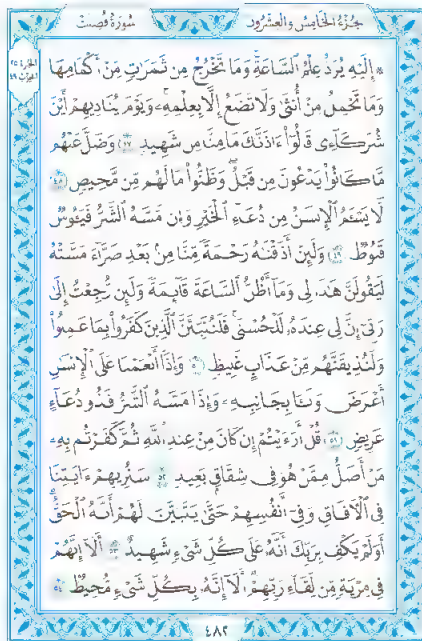 جزء الخامس والعشرون
سورة فصلت
الجزء ٢٥
الحزب ٤٩
۞ إِلَيْهِ يُرَدُّ عِلْمُ ٱلسَّاعَةِ وَمَا تَخْرُجُ مِن ثَمَرَٰتٍ مِّنْ أَكْمَامِهَا
وَمَا تَحْمِلُ مِنْ أُنثَىٰ وَلَا تَضَعُ إِلَّا بِعِلْمِهِۦ وَيَوْمَ يُنَادِيهِمْ أَيْنَ
شُرَكَآءِى قَالُوٓا۟ ءَاذَنَّـٰكَ مَا مِنَّا مِن شَهِيدٍ ٤٧ وَضَلَّ عَنْهُم
مَّا كَانُوا۟ يَدْعُونَ مِن قَبْلُ وَظَنُّوا۟ مَا لَهُم مِّن مَّحِيصٍ ٤٨
لَّا يَسْـَٔمُ ٱلْإِنسَـٰنُ مِن دُعَآءِ ٱلْخَيْرِ وَإِن مَّسَّهُ ٱلشَّرُّ فَيَـُٔوسٌ
قَنُوطٌ ٤٩ وَلَئِنْ أَذَقْنَـٰهُ رَحْمَةً مِّنَّا مِنۢ بَعْدِ ضَرَّآءَ مَسَّتْهُ
لَيَقُولَنَّ هَـٰذَا لِى وَمَآ أَظُنُّ ٱلسَّاعَةَ قَآئِمَةً وَلَئِن رُّجِعْتُ إِلَىٰ
رَبِّىٓ إِنَّ لِى عِندَهُۥ لَلْحُسْنَىٰ فَلَنُنَبِّئَنَّ ٱلَّذِينَ كَفَرُوا۟ بِمَا عَمِلُوا۟
وَلَنُذِيقَنَّهُم مِّنْ عَذَابٍ غَلِيظٍ ٥٠ وَإِذَآ أَنْعَمْنَا عَلَى ٱلْإِنسَـٰنِ
أَعْرَضَ وَنَـَٔا بِجَانِبِهِۦ وَإِذَا مَسَّهُ ٱلشَّرُّ فَذُو دُعَآءٍ
عَرِيضٍ ٥١ قُلْ أَرَءَيْتُمْ إِن كَانَ مِنْ عِندِ ٱللَّهِ ثُمَّ كَفَرْتُم بِهِۦ
مَنْ أَضَلُّ مِمَّنْ هُوَ فِى شِقَاقٍۭ بَعِيدٍ ٥٢ سَنُرِيهِمْ ءَايَـٰتِنَا
فِى ٱلْـَٔافَاقِ وَفِىٓ أَنفُسِهِمْ حَتَّىٰ يَتَبَيَّنَ لَهُمْ أَنَّهُ ٱلْحَقُّ
أَوَلَمْ يَكْفِ بِرَبِّكَ أَنَّهُۥ عَلَىٰ كُلِّ شَىْءٍ شَهِيدٌ ٥٣ أَلَآ إِنَّهُمْ
فِى مِرْيَةٍ مِّن لِّقَآءِ رَبِّهِمْ أَلَآ إِنَّهُۥ بِكُلِّ شَىْءٍ مُّحِيطٌۢ ٥٤
٤٨٢